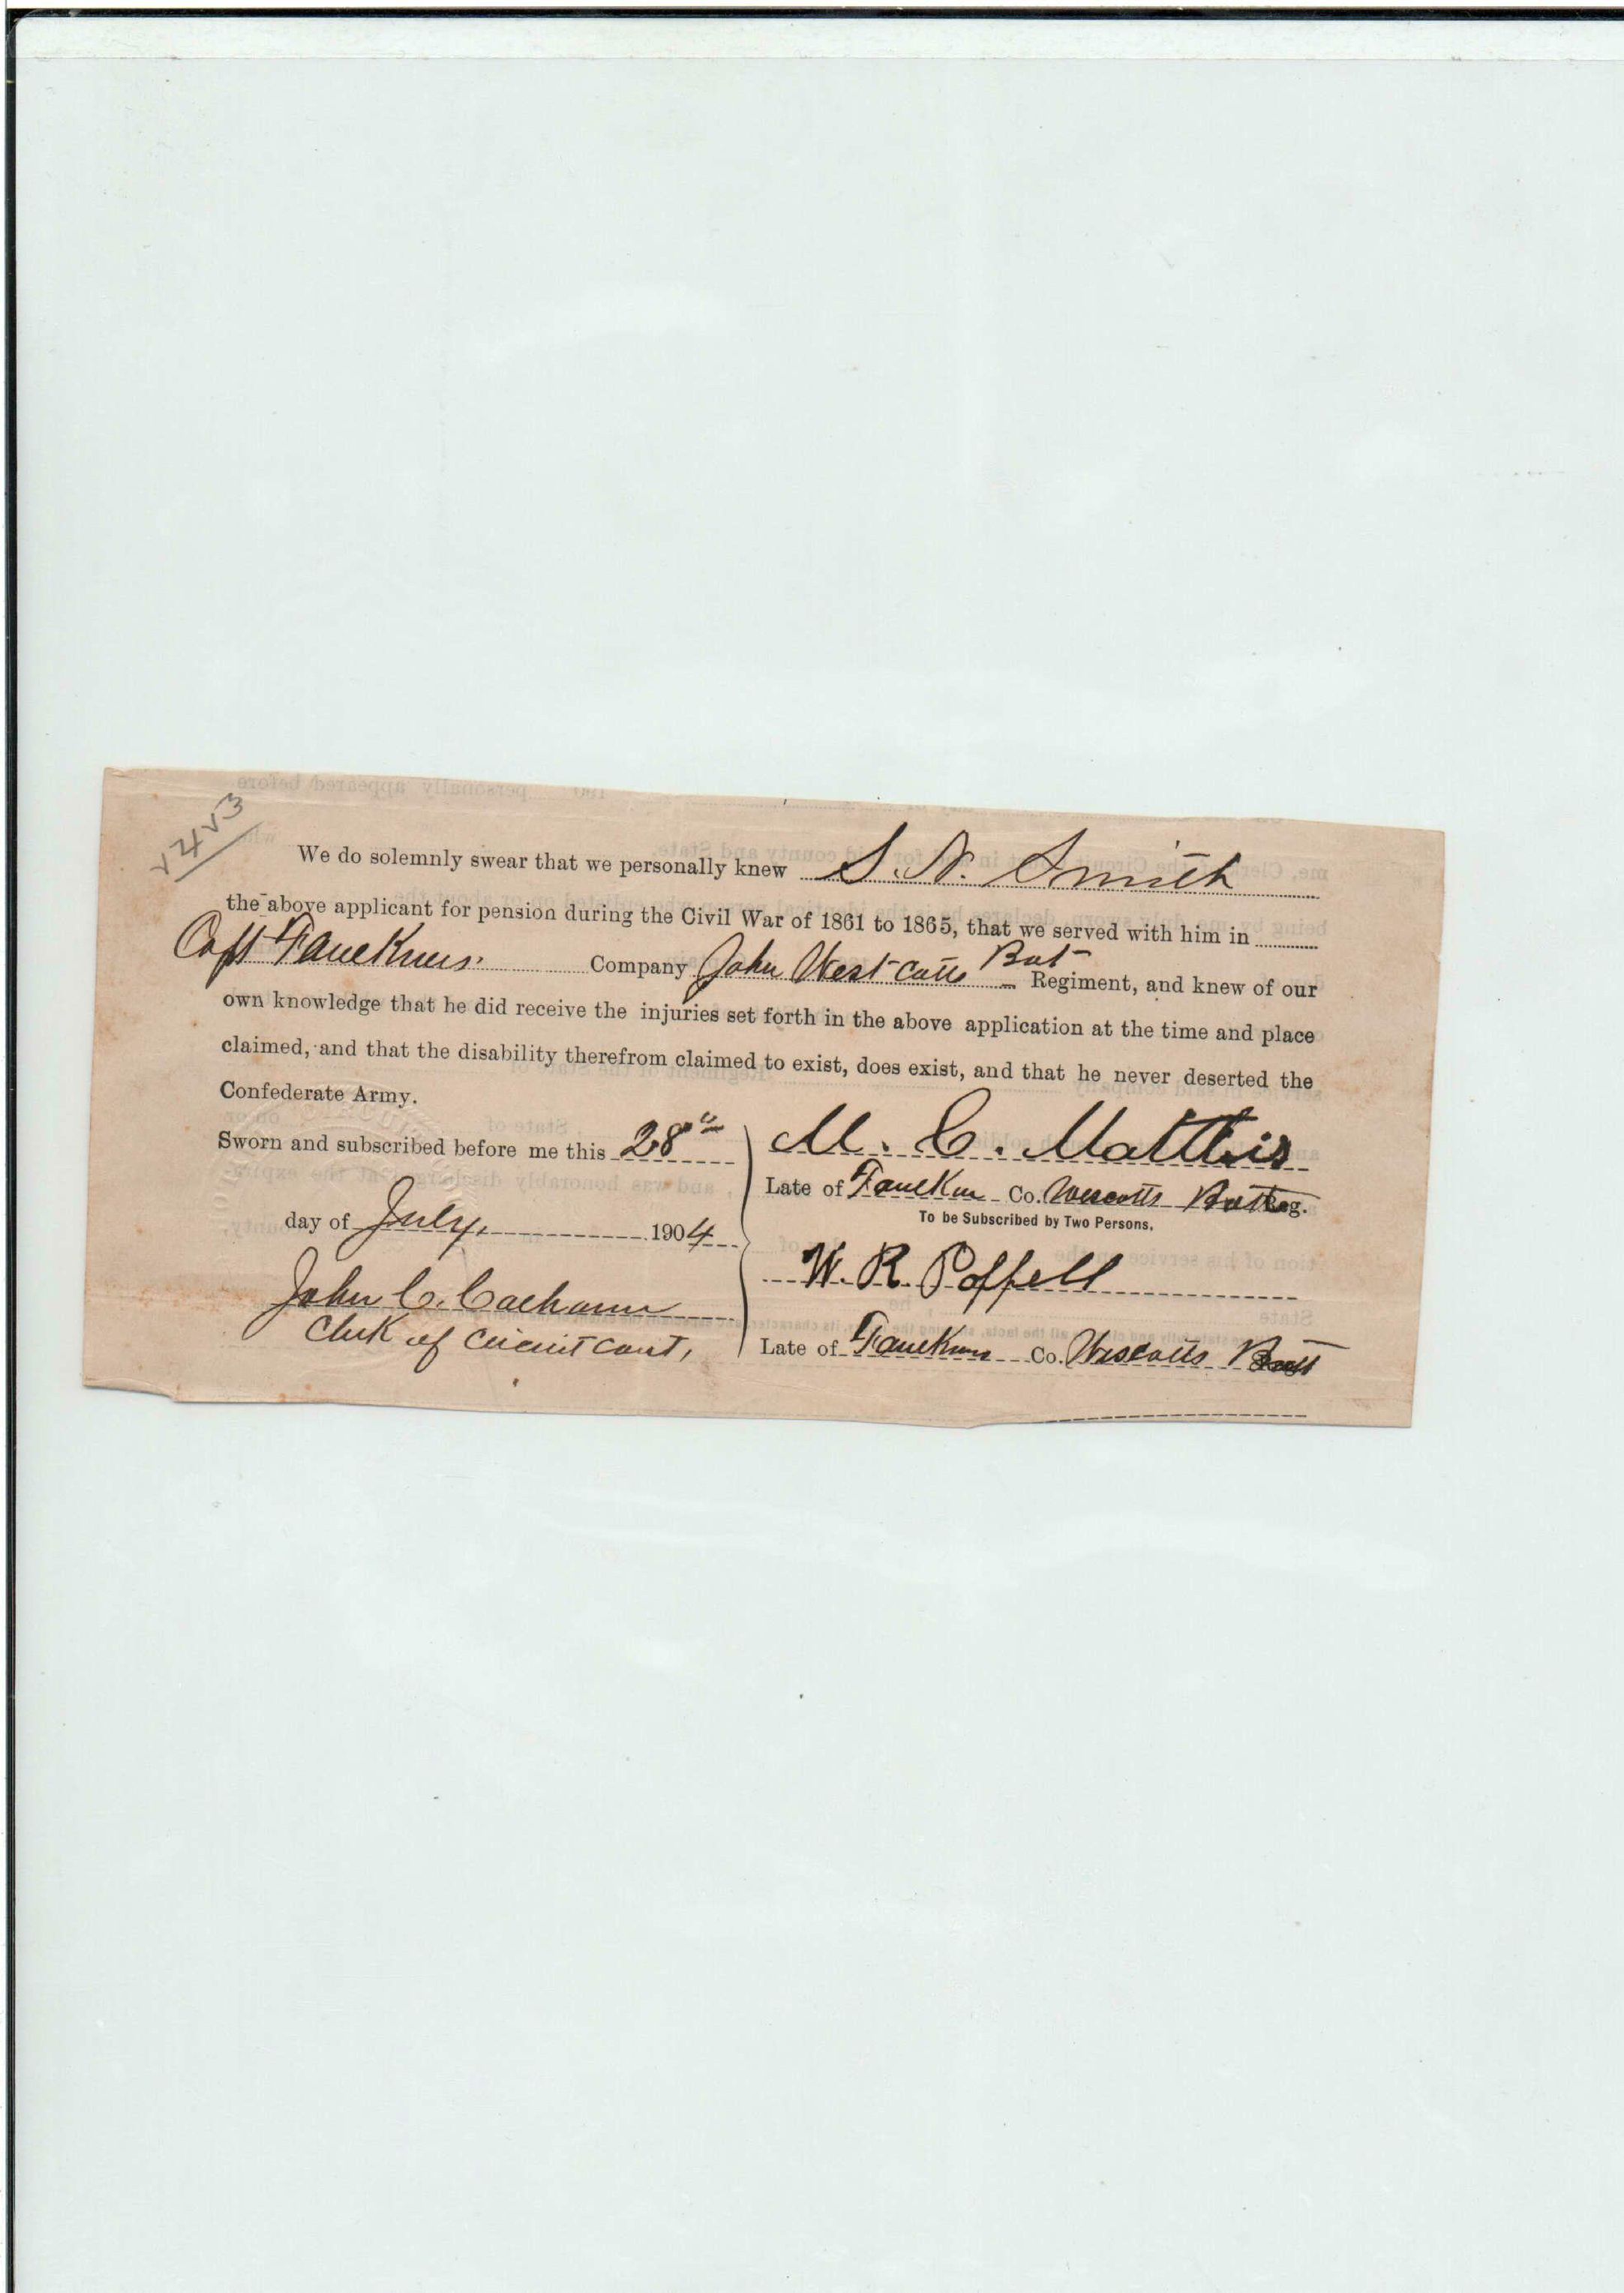 v4v3
We do solemnly swear that we personally knew S. N. Smith
the above applicant for pension during the Civil War of 1861 to 1865, that we served with him in
Capt Faulkners. Company John Westcotts Bat Regiment, and knew of our
own knowledge that he did receive the injuries set forth in the above application at the time and place
claimed, and that the disability therefrom claimed to exist, does exist, and that he never deserted the
Confederate Army.
Sworn and subscribed before me this 28th
day of July, 1904
John C. Calhoun
Clerk of Circuit Court,
M. C. Matthis
Late of Faulkner Co. Wescotts Batt Reg.
To be Subscribed by Two Persons.
W. R. Poppell
Late of Faulkners Co. Wescotts Batt